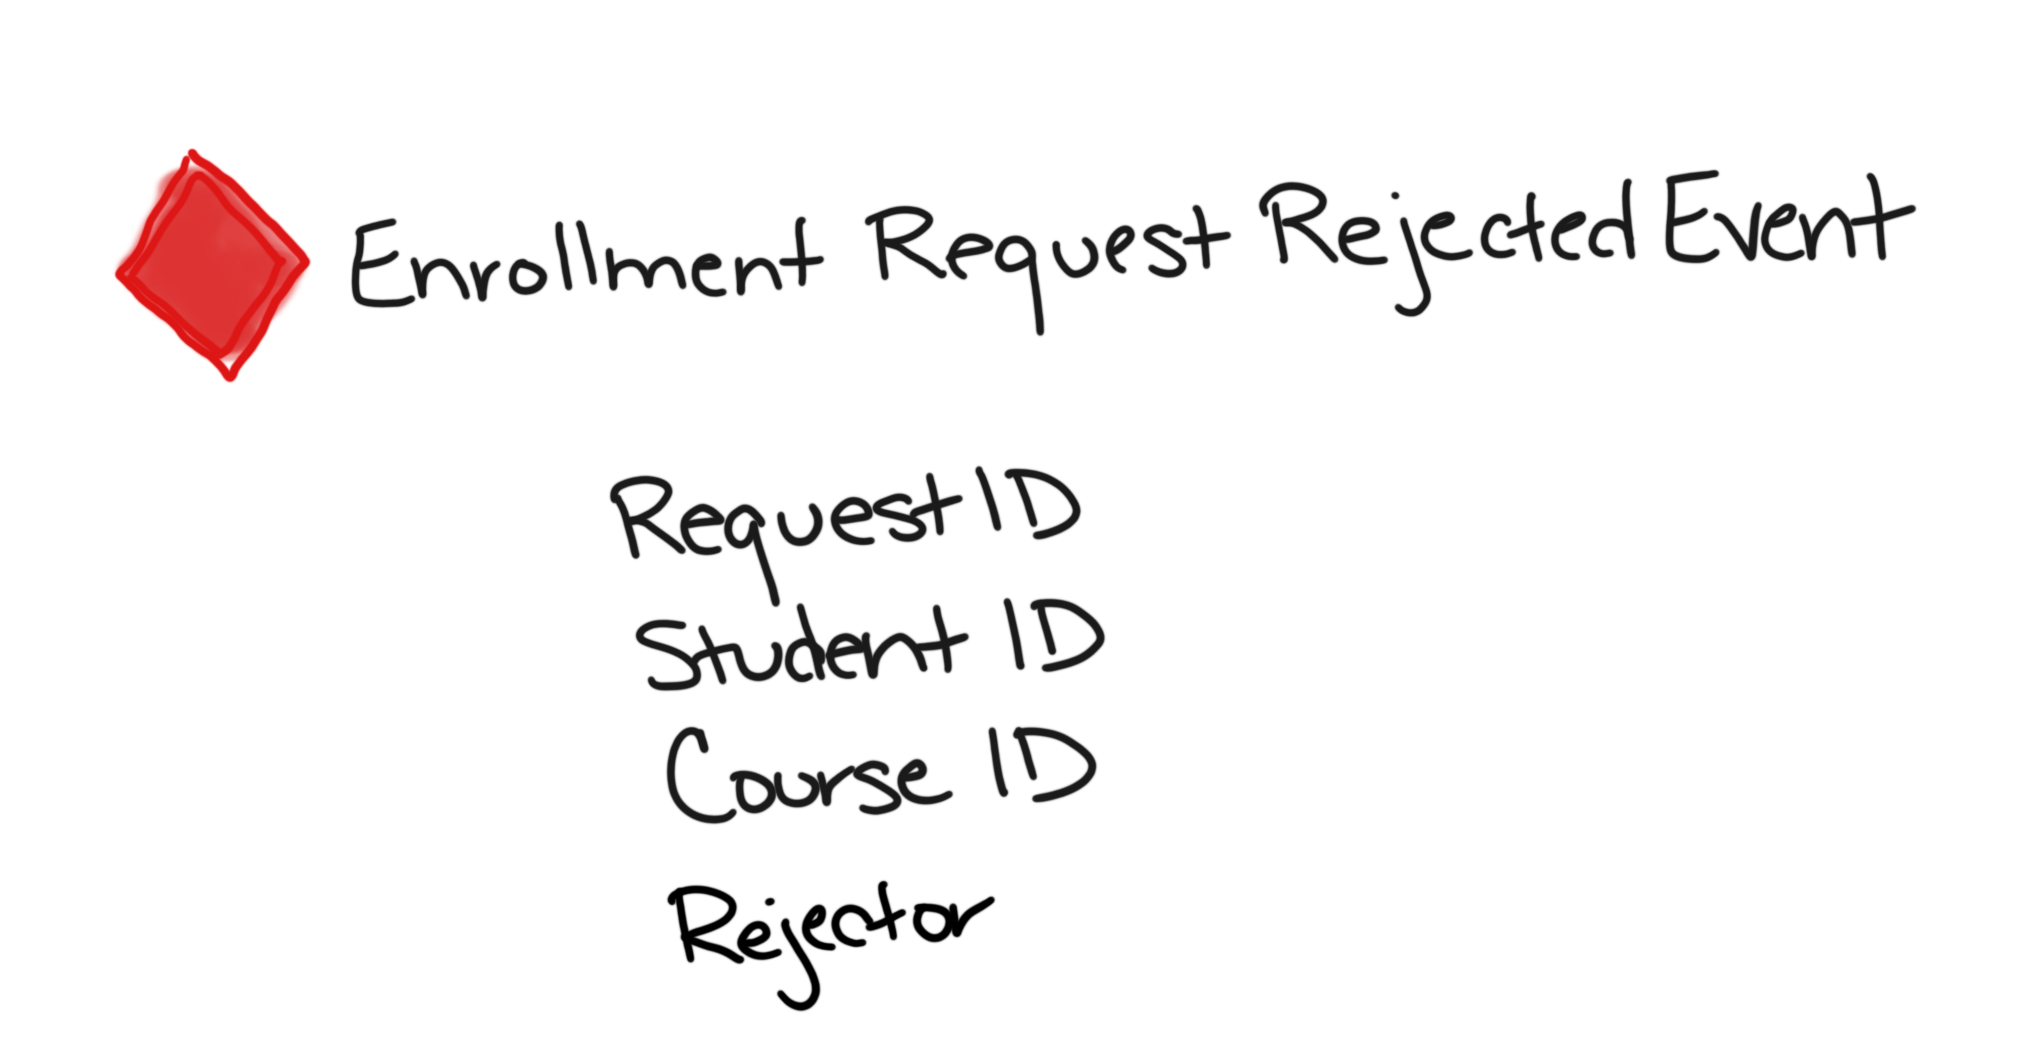 Enrollment Request Rejected Event
Request ID
Student ID
Course ID
Rejector